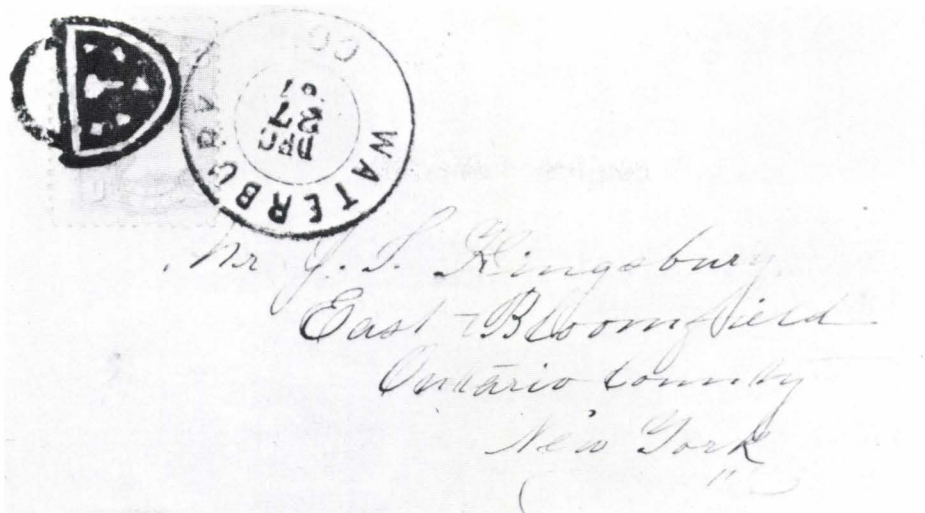 WATERBURY
CO
DEC
27
Mr J. S. Kingsbury
East Bloomfield
Ontario County
New York